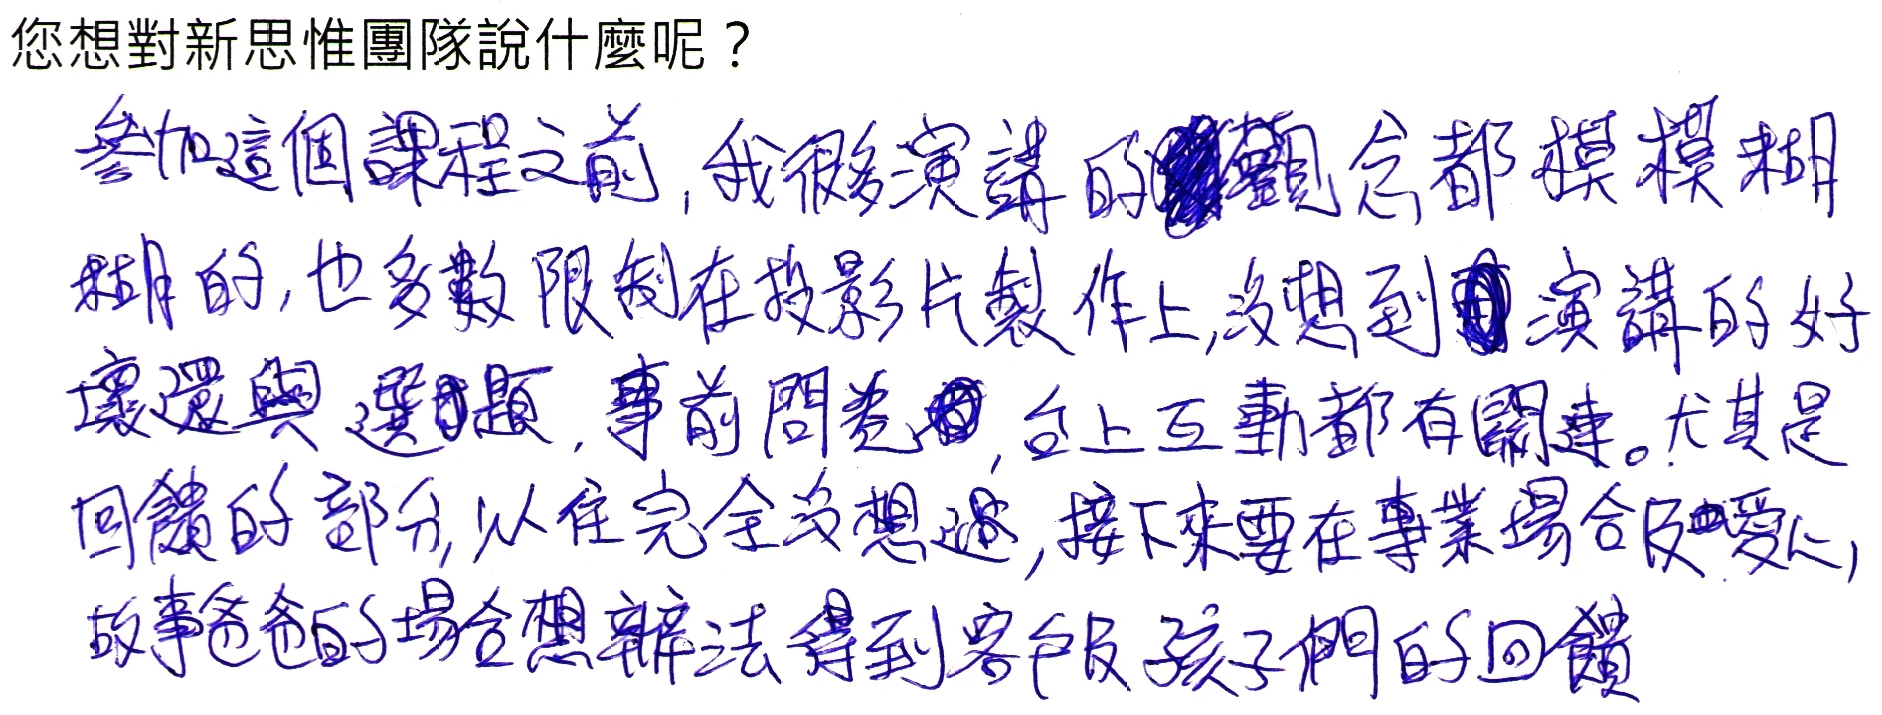 您想對新思惟團隊說什麼呢？
參加這個課程之前,我很多演講的觀念都模模糊
糊的,也多數限制在投影片製作上,沒想到演講的好
壞還與選題,事前問卷,台上互動都有關連。尤其是
回饋的部分,以往完全沒想過,接下來要在專業場合及愛心,
故事爸爸的場合想辦法得到客戶及孩子們的回饋